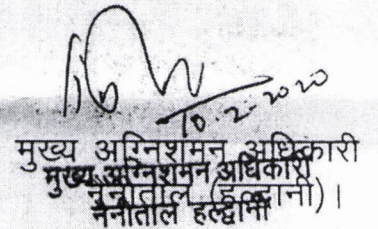 10.2.2020
मुख्य अग्निशमन अधिकारी
मुख्य अग्निशमन अधिकारी
नैनीताल (हल्द्वानी)।
नैनीताल हल्द्वानी